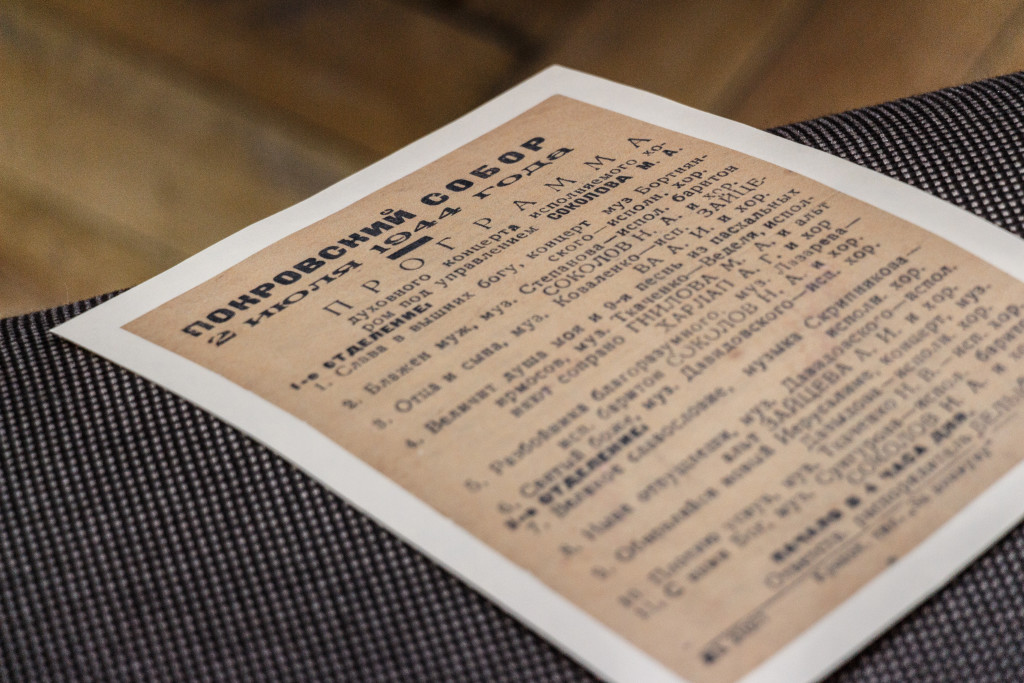 ПОКРОВСКИЙ СОБОР
2 ИЮЛЯ 1944 года
ПРОГРАММА
духовного концерта исполняемого хо-
ром под управлением СОКОЛОВА М. А.
1-е ОТДЕЛЕНИЕ:
1. Слава в вышних богу, концерт муз Бортнян-
ского—исполн. хор.
2. Блажен муж, муз. Степанова—испол. баритон
СОКОЛОВ Н. А. и хор.
3. Отца и сына, муз. Коваленко—исп. ЗАЙЦЕ-
ВА А. И. и хор.
4. Величит душа моя и 9-я песнь из пасхальных
ирмосов, муз. Ткаченко—Веделя, испол-
няют сопрано ГНИЛОВА М. А. и альт
ХАРЛАП А. Г. и хор
5. Разбойника благоразумного, муз. Лазарева—
исп. баритон СОКОЛОВ Н. А. и хор.
6. Святый боже, муз. Давидовского—исп. хор
ОТДЕЛЕНИЕ:
7. Великое славословие, музыка Скрипникова—
исполн. хор.
8. Ныне отпущаеши, муз. Давидовского—испол.
альт ЗАЙЦЕВА А. И. и хор.
9. Иерусалиме, концерт, муз.
исполн. хор.
10. муз. Ткаченко Н. В.—исп. хор.
11. С нами Бог, муз. испол.
СОКОЛОВ Н. А. и хор
НАЧАЛО В 4 ЧАСА ДНЯ.